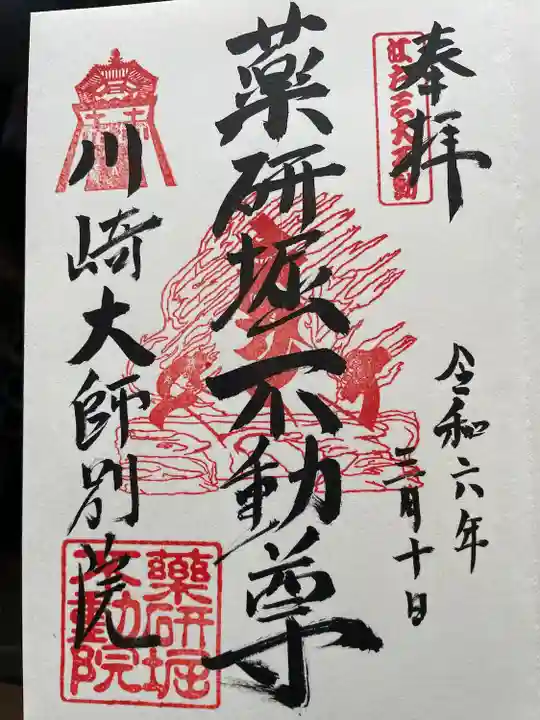 奉拝
江戸三大不動
令和六年
三月十日
薬研堀不動尊
川崎大師別院
薬研堀
不動院